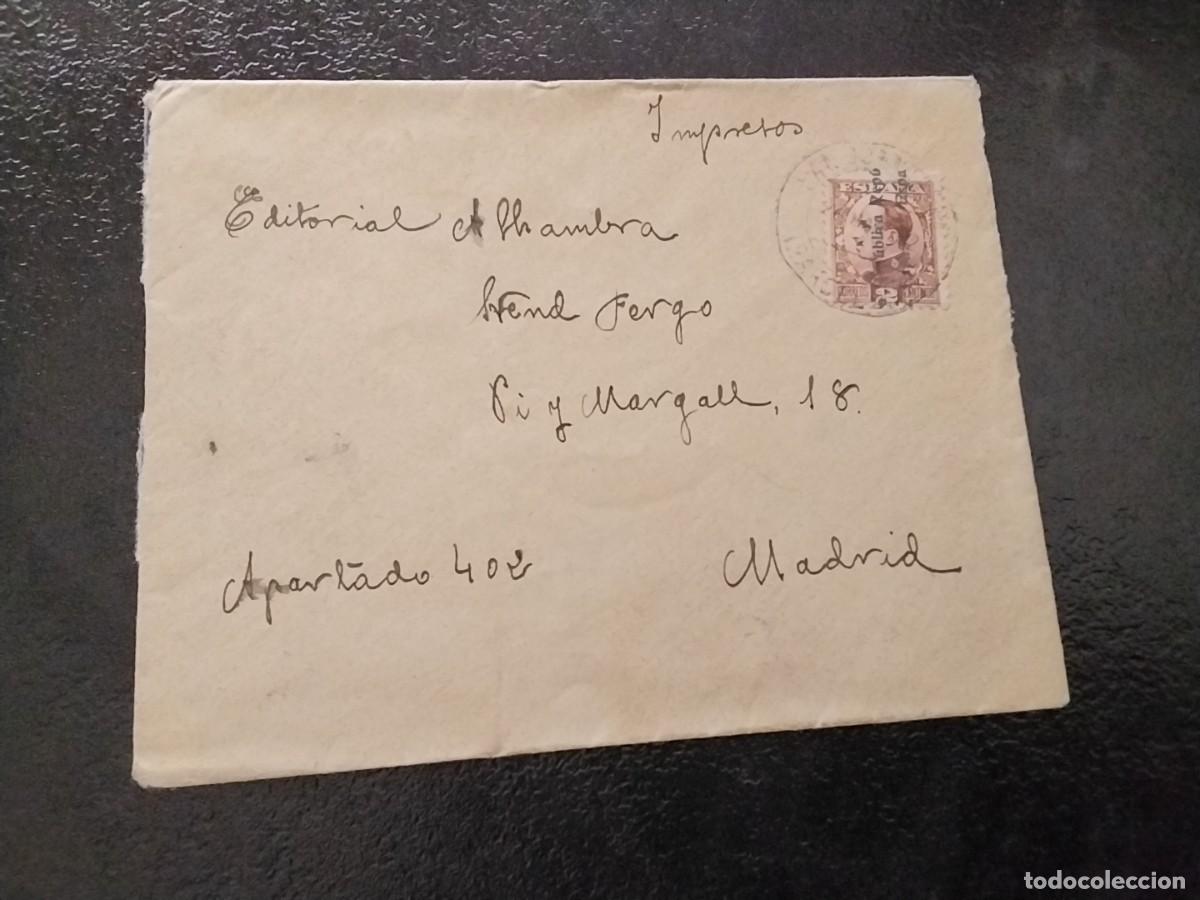 Impresos
ESPAÑA
Editorial Alhambra
Stend Fergo
Pi y Margall, 18.
Apartado 402
Madrid
todocoleccion